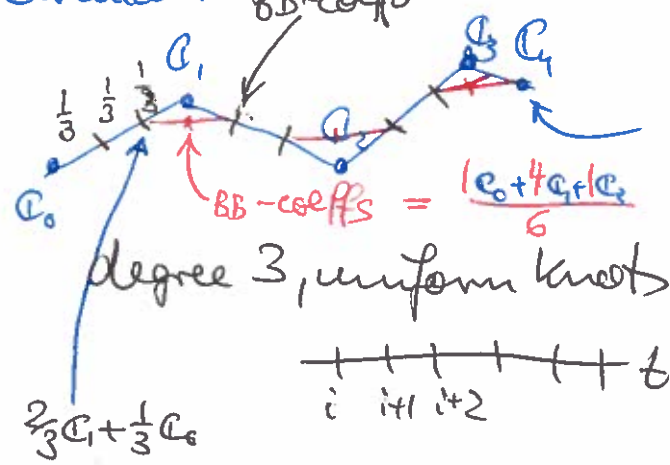 BB-coeffs
C₁
C₃ C₄
1/3 1/3 1/3
C₀
BB-coeffs = (1C₀+4C₁+1C₂)/6
degree 3, uniform knots
t
i i+1 i+2
2/3 C₁ + 1/3 C₀